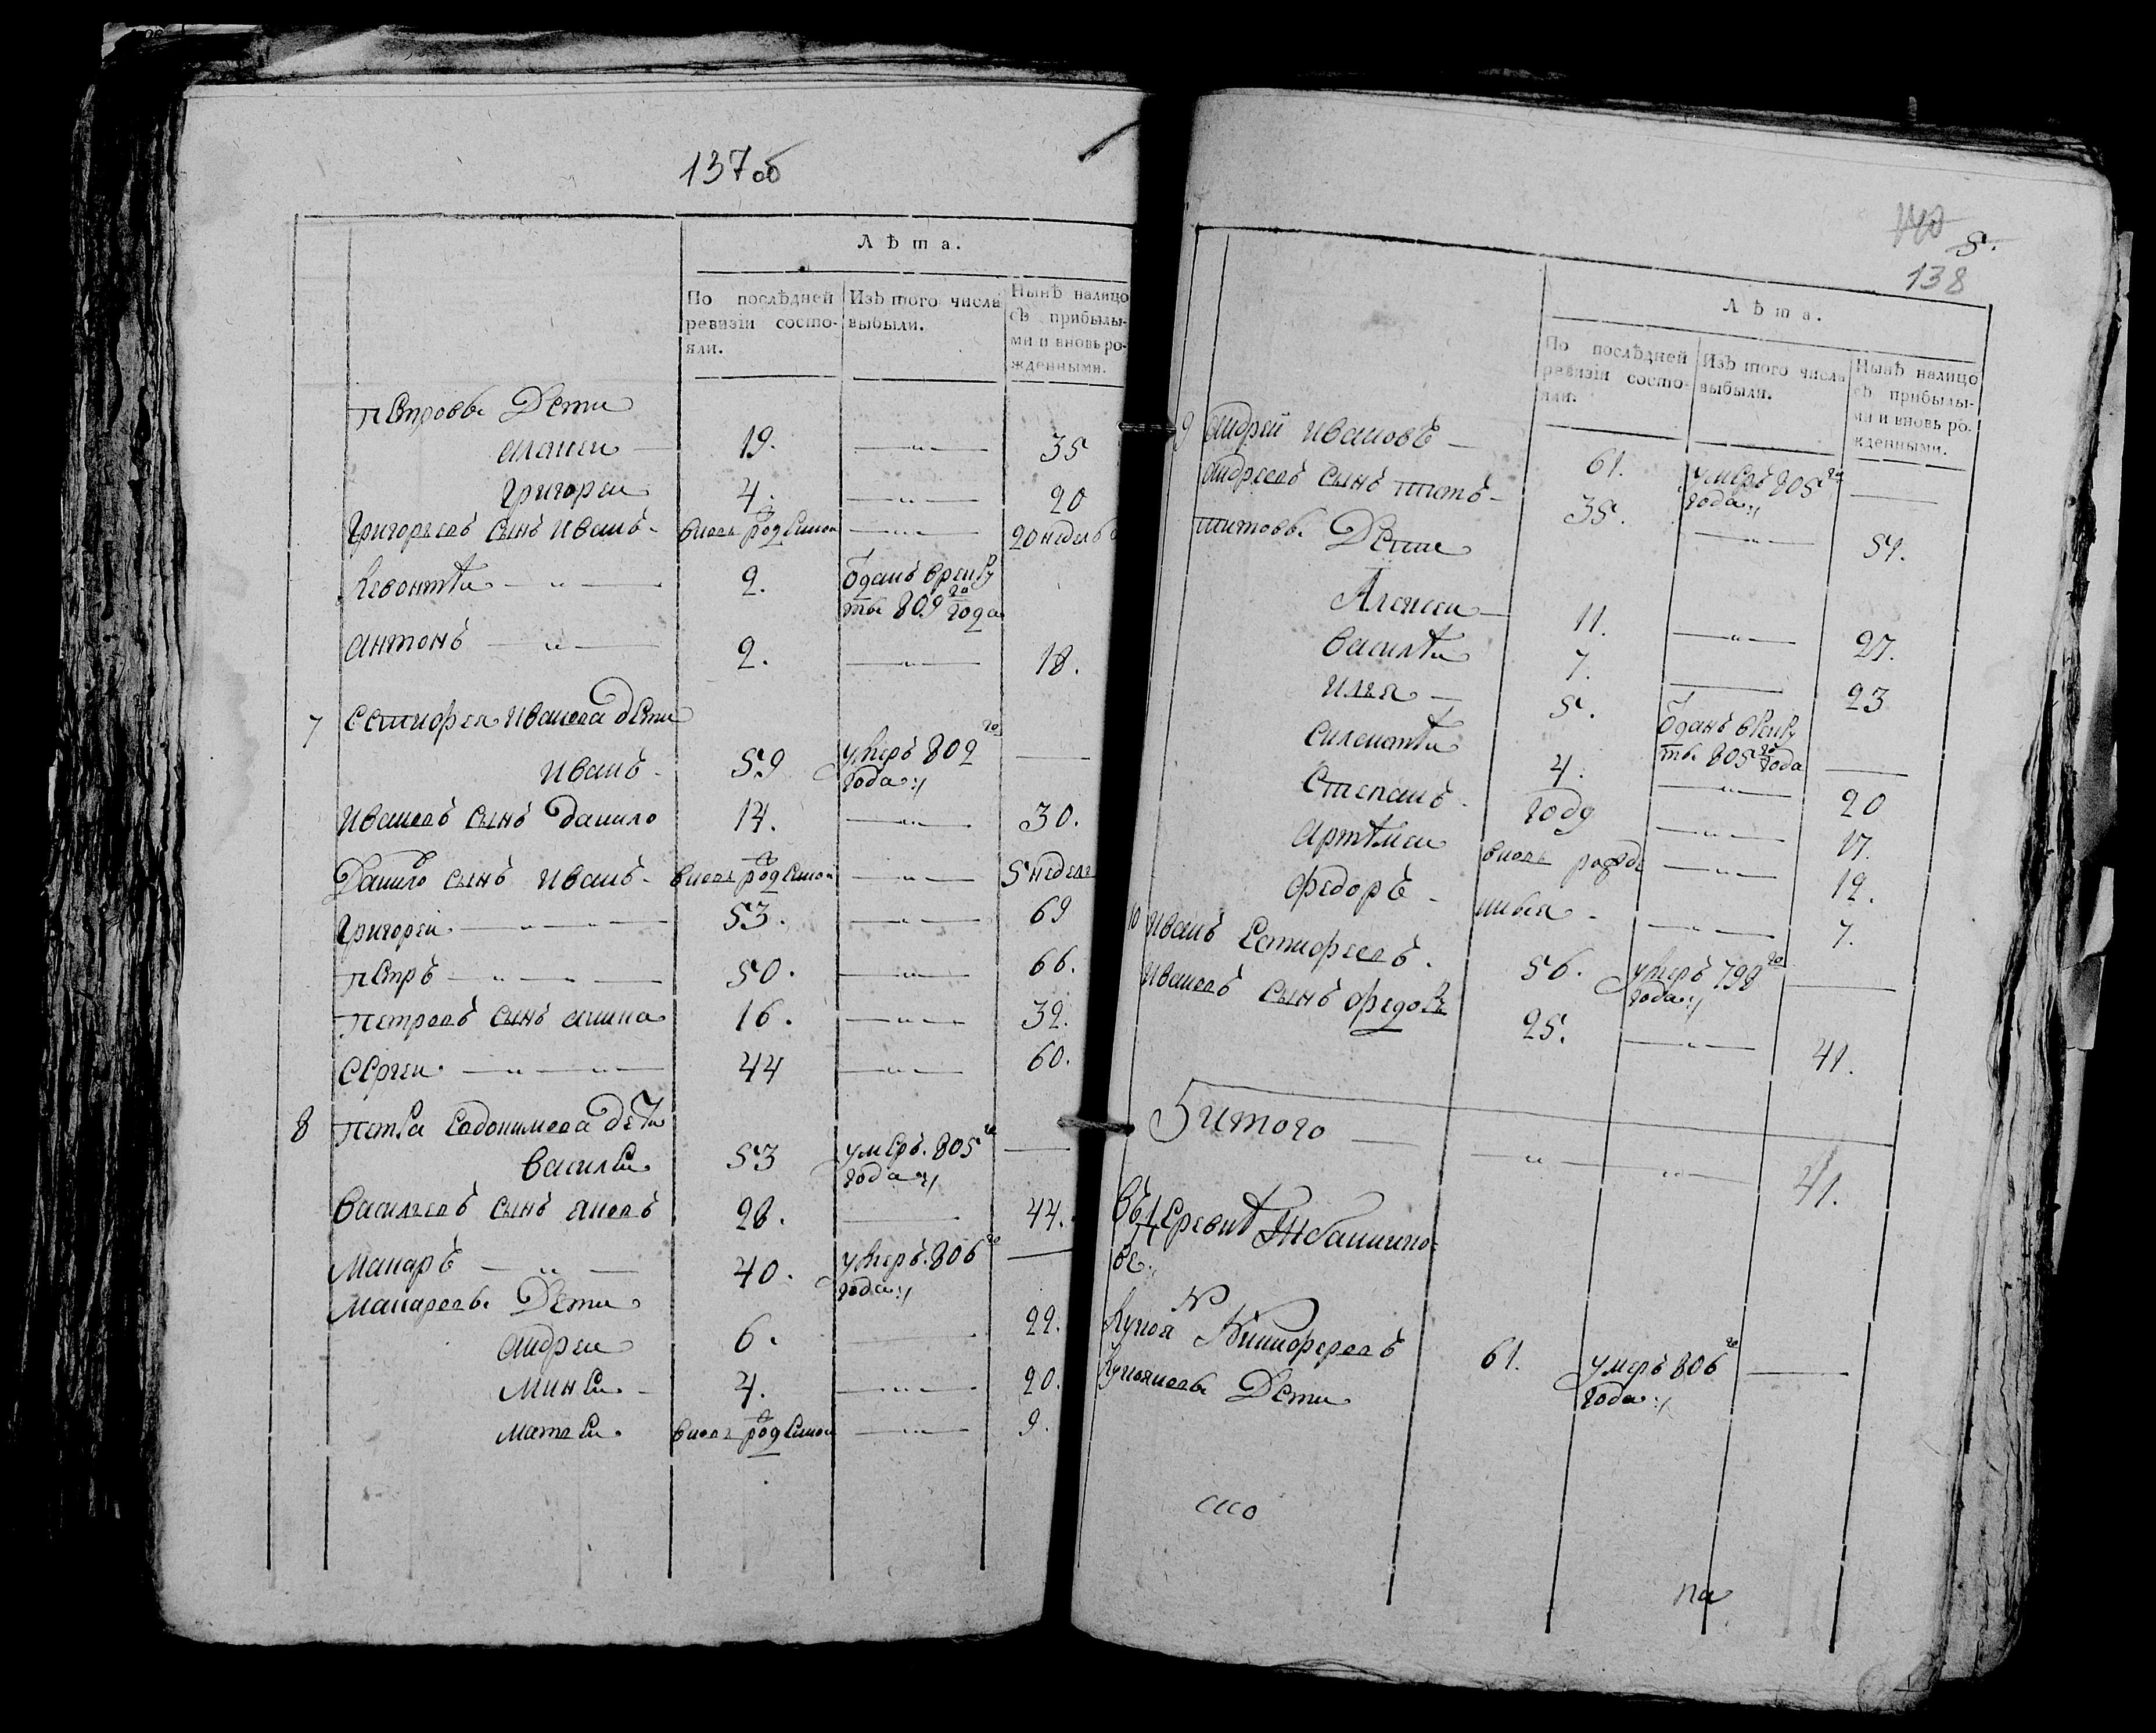 137 об
Лѣта.
По послѣдней ревизіи состо-
яли.
Изъ того числа
выбыли.
Нынѣ налицо
съ прибылы-
ми и вновь ро-
жденными.
Петровы Дети
19. —„— 35
Григореи 4. —„— 20
Григорьевъ сынъ Иванъ - вновь рожденои —„— 20 недель
Левонтѣи —„— 2. Отданъ врекру
ты 809го года
Антонъ —„— 2. —„— 18.
7 Естифея Иванова дети
Иванъ - 59 умеръ 802го
года :/ —
Ивановъ сынъ Данило 14. —„— 30.
Данило сынъ Иванъ - вновь рожденои —„— 5 недель
Григореи —„—„— 53. —„— 69
Петръ —„—„— 50. —„— 66.
Петровъ сынъ 16. —„— 32.
Сергеи —„—„— 44 —„— 60.
8 Петра Евдокимова дети
Василеи 53 умеръ. 805го
года :/ —
Васильевъ сынъ Яковъ 28. — 44.
Макаръ —„— 40. умеръ. 806го
года :/ —
Макаровы Дети
Андреи 6. — 22.
Минеи - 4. —„— 20.
Матвеи. вновь рожденои —„— 9.
140
5.
138
Лѣта.
По послѣдней
ревизіи состо-
яли.
Изъ того числа
выбыли.
Нынѣ налицо
съ прибылы-
ми и вновь ро-
жденными.
9 Андрей Ивановъ — 61. умеръ 805го
года :/ —
Андреевъ сынъ Титъ - 35. —„— 51.
Титовы Дети
Алексеи — 11. —„— 27.
Василѣи 7. — 23
Илья — 5. Отданъ врекру
ты 805го года —
4. —„— 20
Степанъ - году —„— 17.
Артѣмеи вновь рожде —„— 12.
Федоръ - ныя - —„— 7.
10 Иванъ Естифеевъ. 56. умеръ 798го
года :/ —
Ивановъ сынъ Федоръ 25. —„— 41.
Итого — —„—„— 41.
Въ деревнѣ
ве :
№
Никифоровъ 61. умеръ 806го
года :/ —
Дети
на